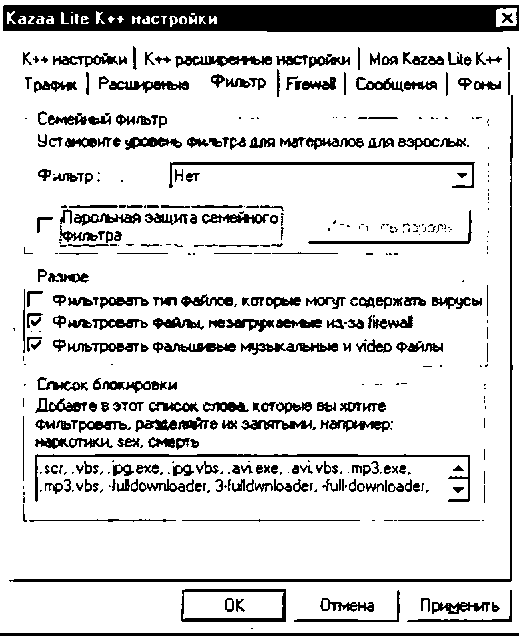 Kazaa Lite K++ настройки
K++ настройки | K++ расширенные настройки | Моя Kazaa Lite K++
Трафик | Расширеные Фильтр | Firewall | Сообщения | Фоны
Семейный фильтр
Установите уровень фильтра для материалов для взрослых.
Фильтр: Нет
Парольная защита семейного
фильтра
пароль
Разное
Фильтровать тип файлов, которые могут содержать вирусы
Фильтровать файлы, незагружаемые из-за firewall
Фильтровать фальшивые музыкальные и video файлы
Список блокировки
Добавте в этот список слова, которые вы хотите
фильтровать, разделяйте их запятыми, например:
наркотики, sex, смерть
.scr, .vbs, .jpg.exe, .jpg.vbs, .avi.exe, .avi.vbs, .mp3.exe,
.mp3.vbs, -fulldownloader, 3-fulldwnloader, -full-downloader,
OK Отмена Применить